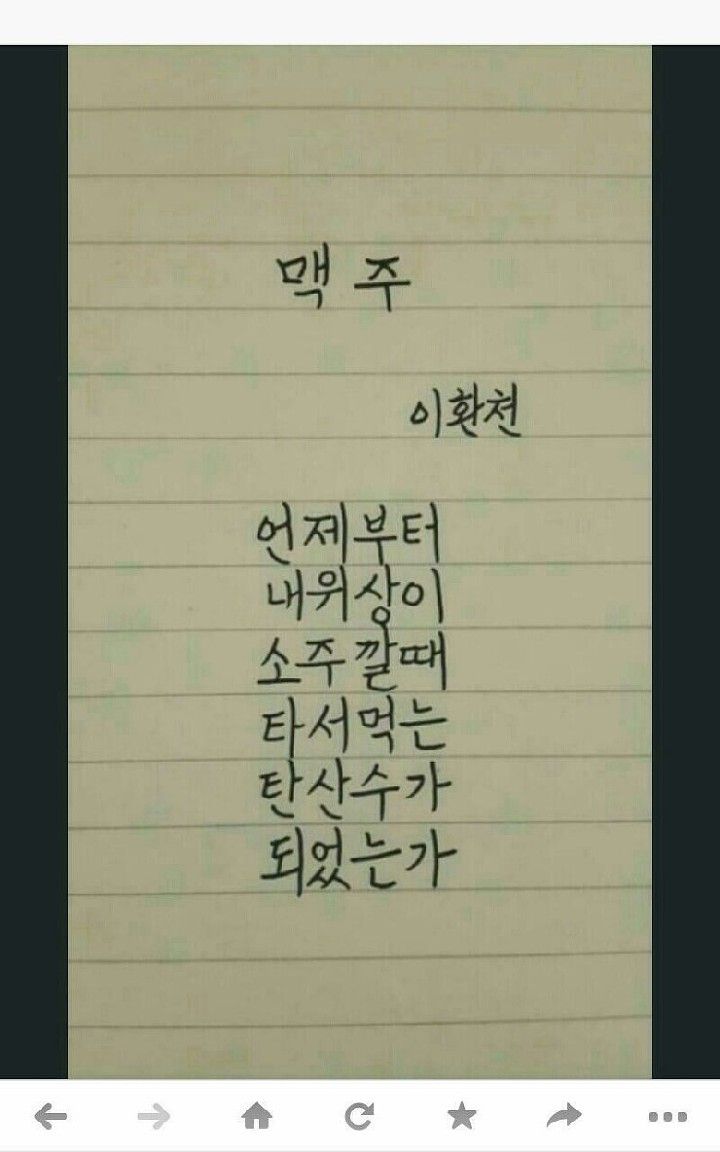 맥주
이환천
언제부터
내위상이
소주깔때
타서먹는
탄산수가
되었는가